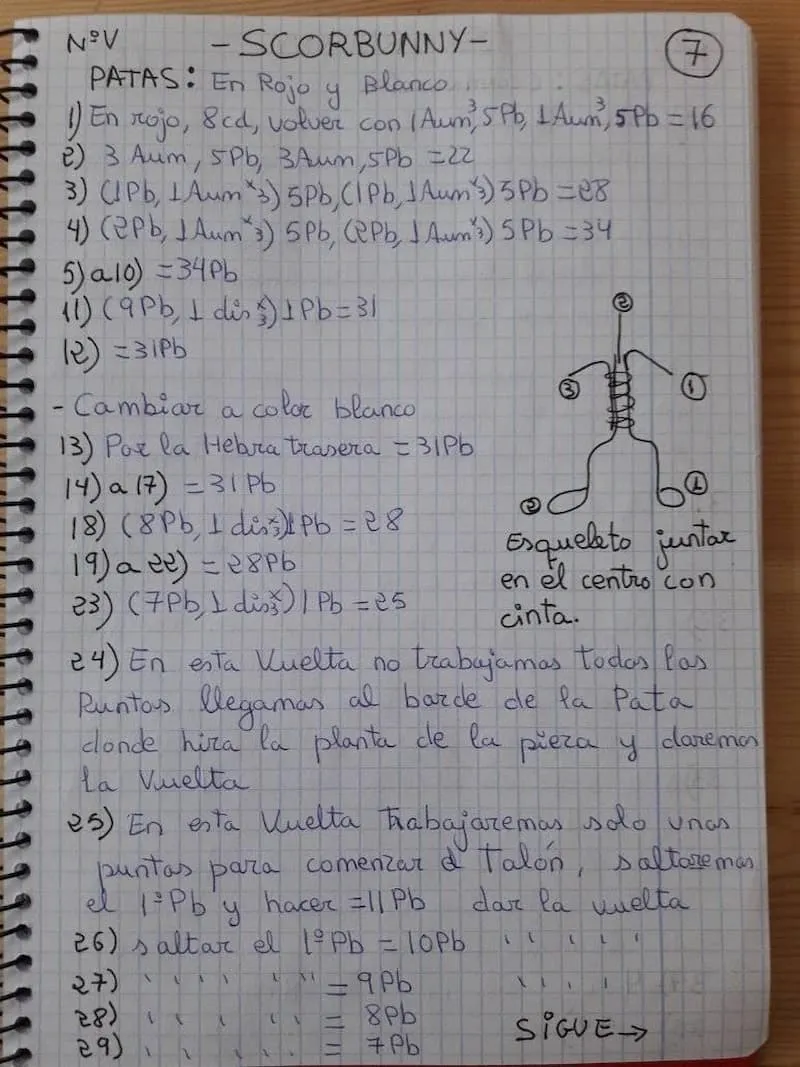 NºV - SCORBUNNY - 7
PATAS: En Rojo y Blanco
1) En rojo, 8cd, volver con 1Aum³, 5Pb, 1Aum³, 5Pb = 16
2) 3 Aum, 5Pb, 3Aum, 5Pb = 22
3) (1Pb, 1Aum x3) 5Pb, (1Pb, 1Aum x3) 5Pb = 28
4) (2Pb, 1Aum x3) 5Pb, (2Pb, 1Aum x3) 5Pb = 34
5) a 10) = 34Pb
11) (9Pb, 1 dis x3) 1Pb = 31
12) = 31Pb
- Cambiar a color blanco
13) Por la Hebra trasera = 31Pb
14) a 17) = 31Pb
18) (8Pb, 1 dis x3) 1Pb = 28
19) a 22) = 28Pb
23) (7Pb, 1 dis x3) 1Pb = 25
2
3
1
2
1
Esqueleto juntar
en el centro con
cinta.
24) En esta Vuelta no trabajamos todos los
Puntos llegamos al borde de la Pata
donde hira la planta de la pieza y daremos
la Vuelta
25) En esta Vuelta trabajaremos solo unos
puntos para comenzar el Talón, saltaremos
el 1º Pb y hacer = 11Pb dar la vuelta
26) saltar el 1º Pb = 10Pb " " " " "
27) " " " " " = 9Pb " " " "
28) " " " " " = 8Pb
29) " " " " " = 7Pb
SIGUE →